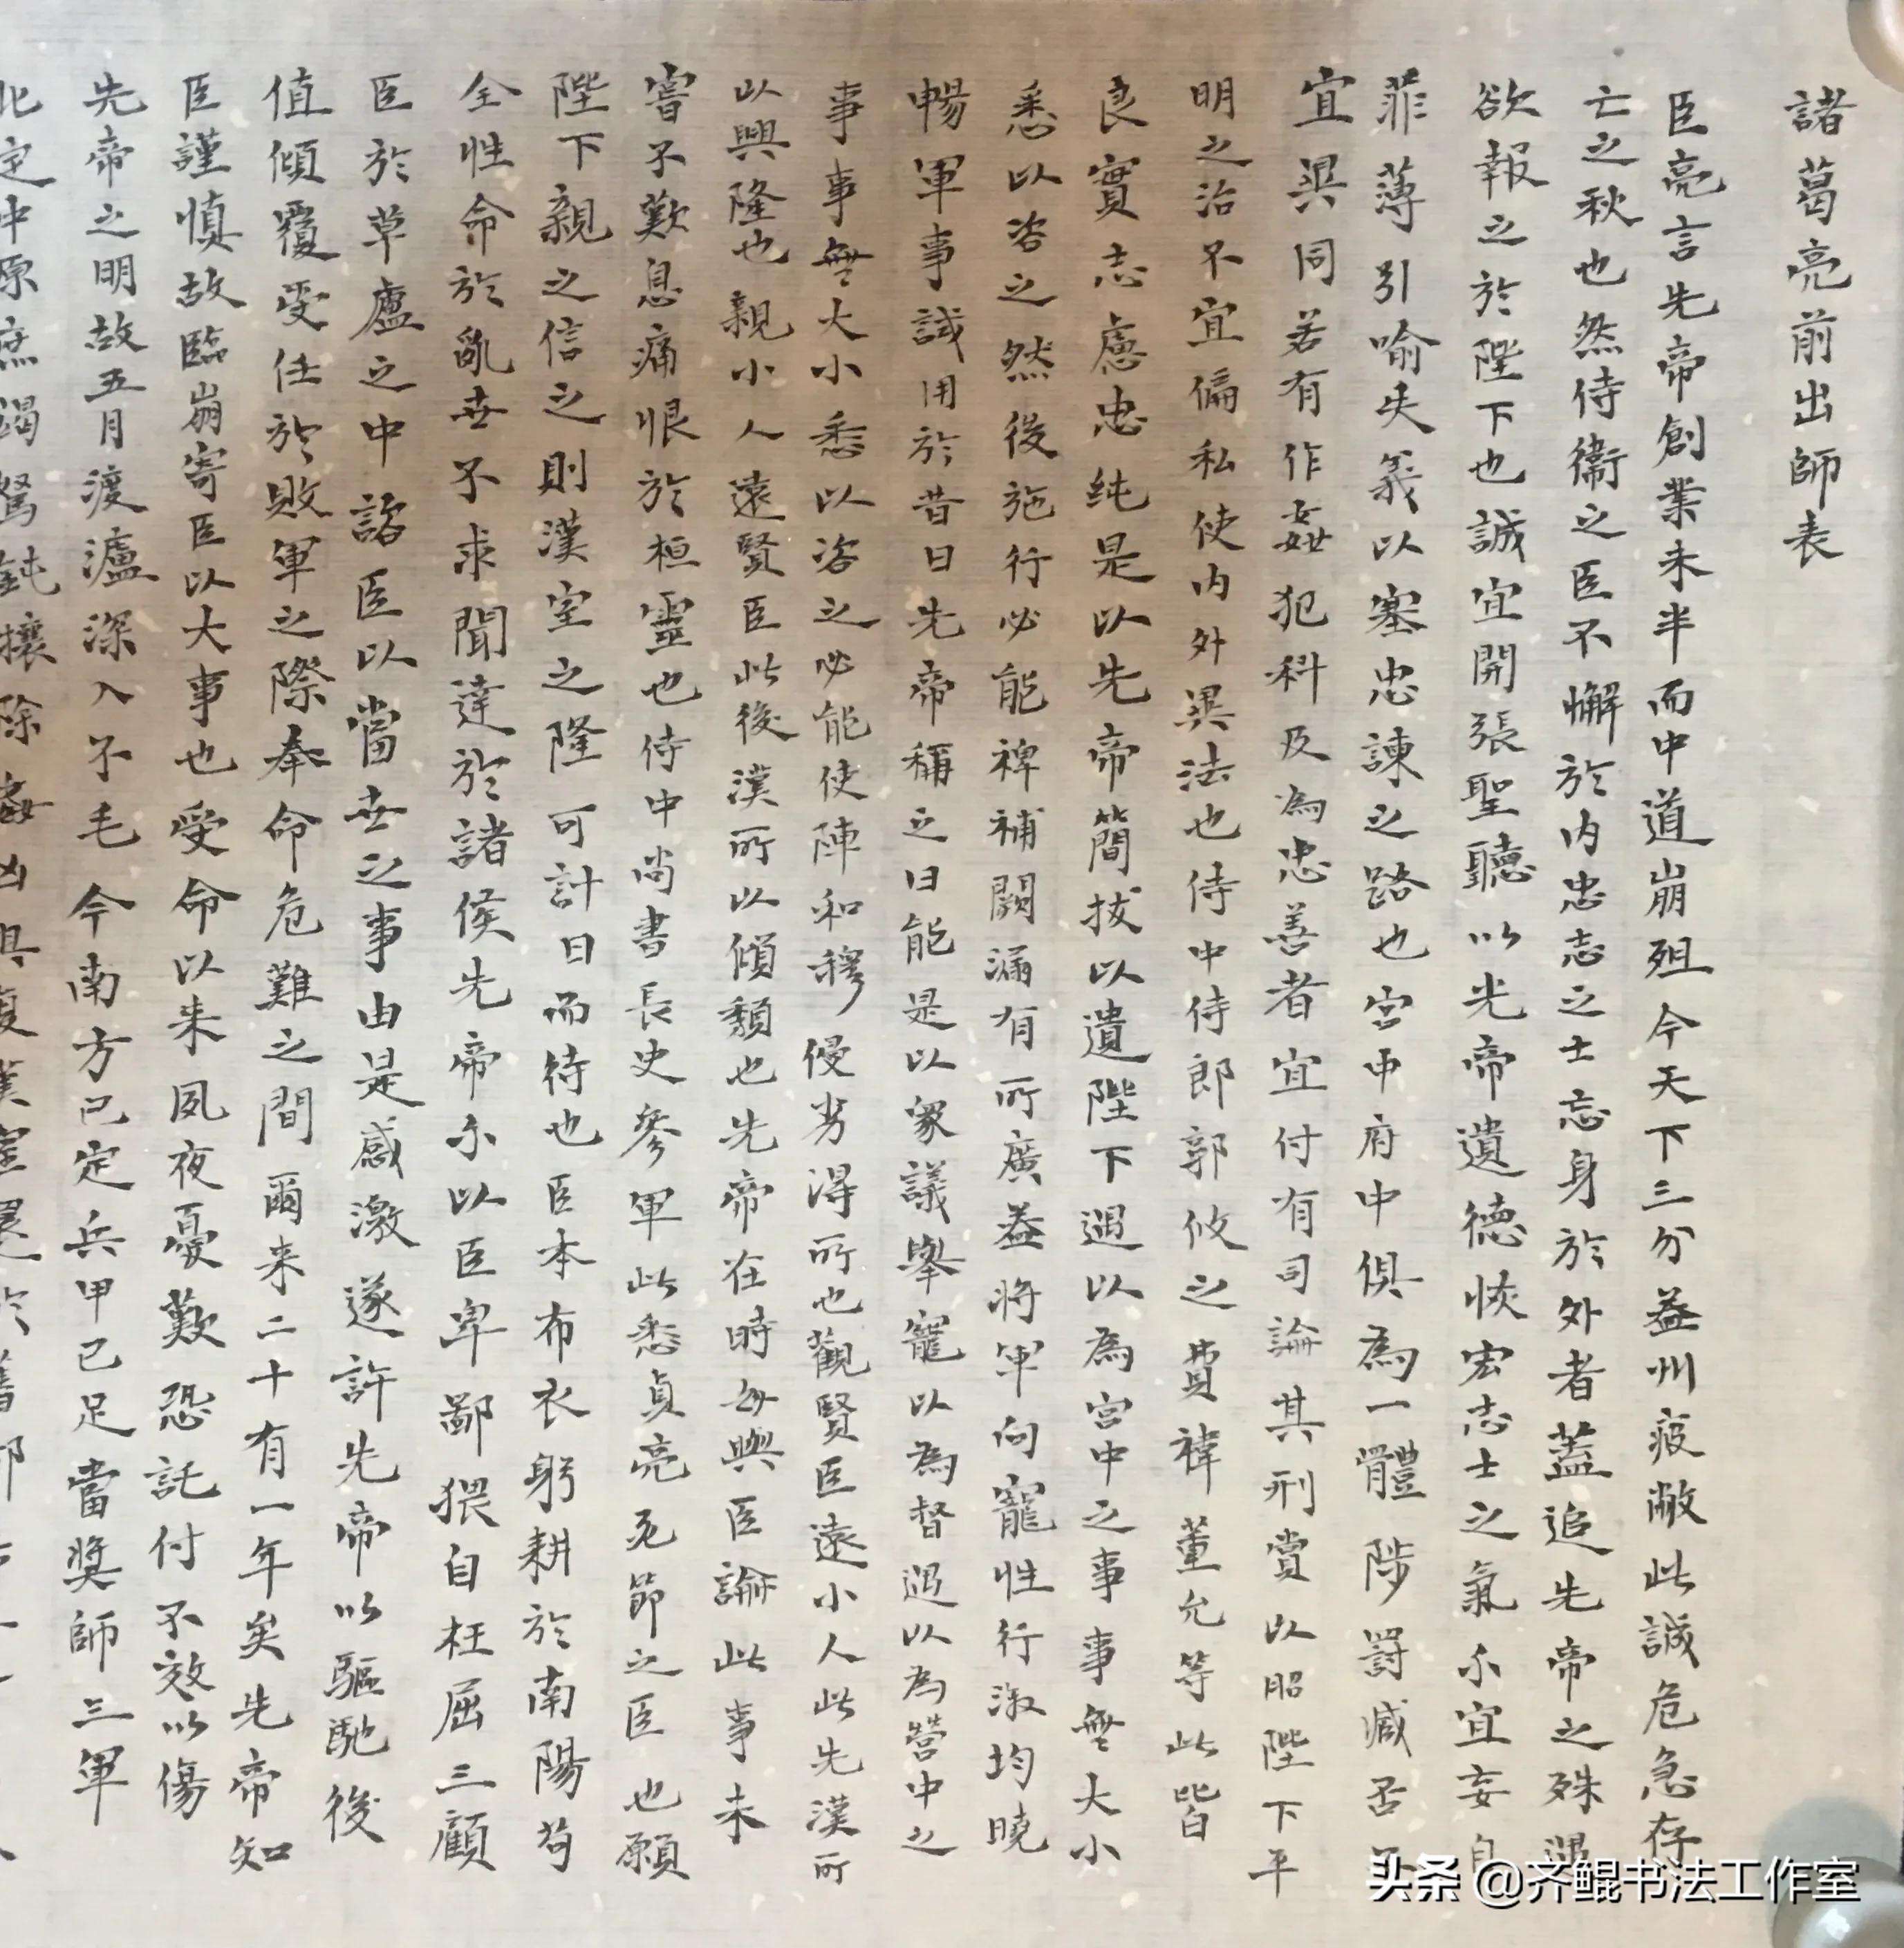 諸葛亮前出師表
臣亮言先帝創業未半而中道崩殂今天下三分益州疲敝此誠危急存
亡之秋也然侍衞之臣不懈於内忠志之士忘身於外者蓋追先帝之殊遇
欲報之於陛下也誠宜開張聖聽以光帝遺德恢宏志士之氣不宜妄自
菲薄引喻失義以塞忠諫之路也宮中府中俱為一體陟罰臧否不
宜異同若有作姦犯科及為忠善者宜付有司論其刑賞以昭陛下平
明之治不宜偏私使内外異法也侍中侍郎郭攸之費禕董允等此皆
良實志慮忠純是以先帝簡拔以遺陛下遇以為宮中之事事無大小
悉以咨之然後施行必能裨補闕漏有所廣益將軍向寵性行淑均曉
暢軍事試用於昔日先帝稱之曰能是以衆議舉寵以為督迢以為營中之
事事無大小悉以咨之必能使陣和穆優劣得所也觀賢臣遠小人此先漢所
以興隆也親小人遠賢臣此後漢所以傾頹也先帝在時每與臣論此事未
嘗不歎息痛恨於桓靈也侍中尚書長史參軍此悉貞亮死節之臣也願
陛下親之信之則漢室之隆可計日而待也臣本布衣躬耕於南陽苟
全性命於亂世不求聞達於諸侯先帝不以臣卑鄙猥自枉屈三顧
臣於草廬之中諮臣以當世之事由是感激遂許先帝以驅馳後
值傾覆受任於敗軍之際奉命危難之間爾来二十有一年矣先帝知
臣謹慎故臨崩寄臣以大事也受命以来夙夜憂歎恐託付不效以傷
先帝之明故五月渡瀘深入不毛今南方已定兵甲已足當奬師三軍
北定中原庶竭駑鈍攘除姦凶興復漢室還於舊都
头条 @齐鲲书法工作室